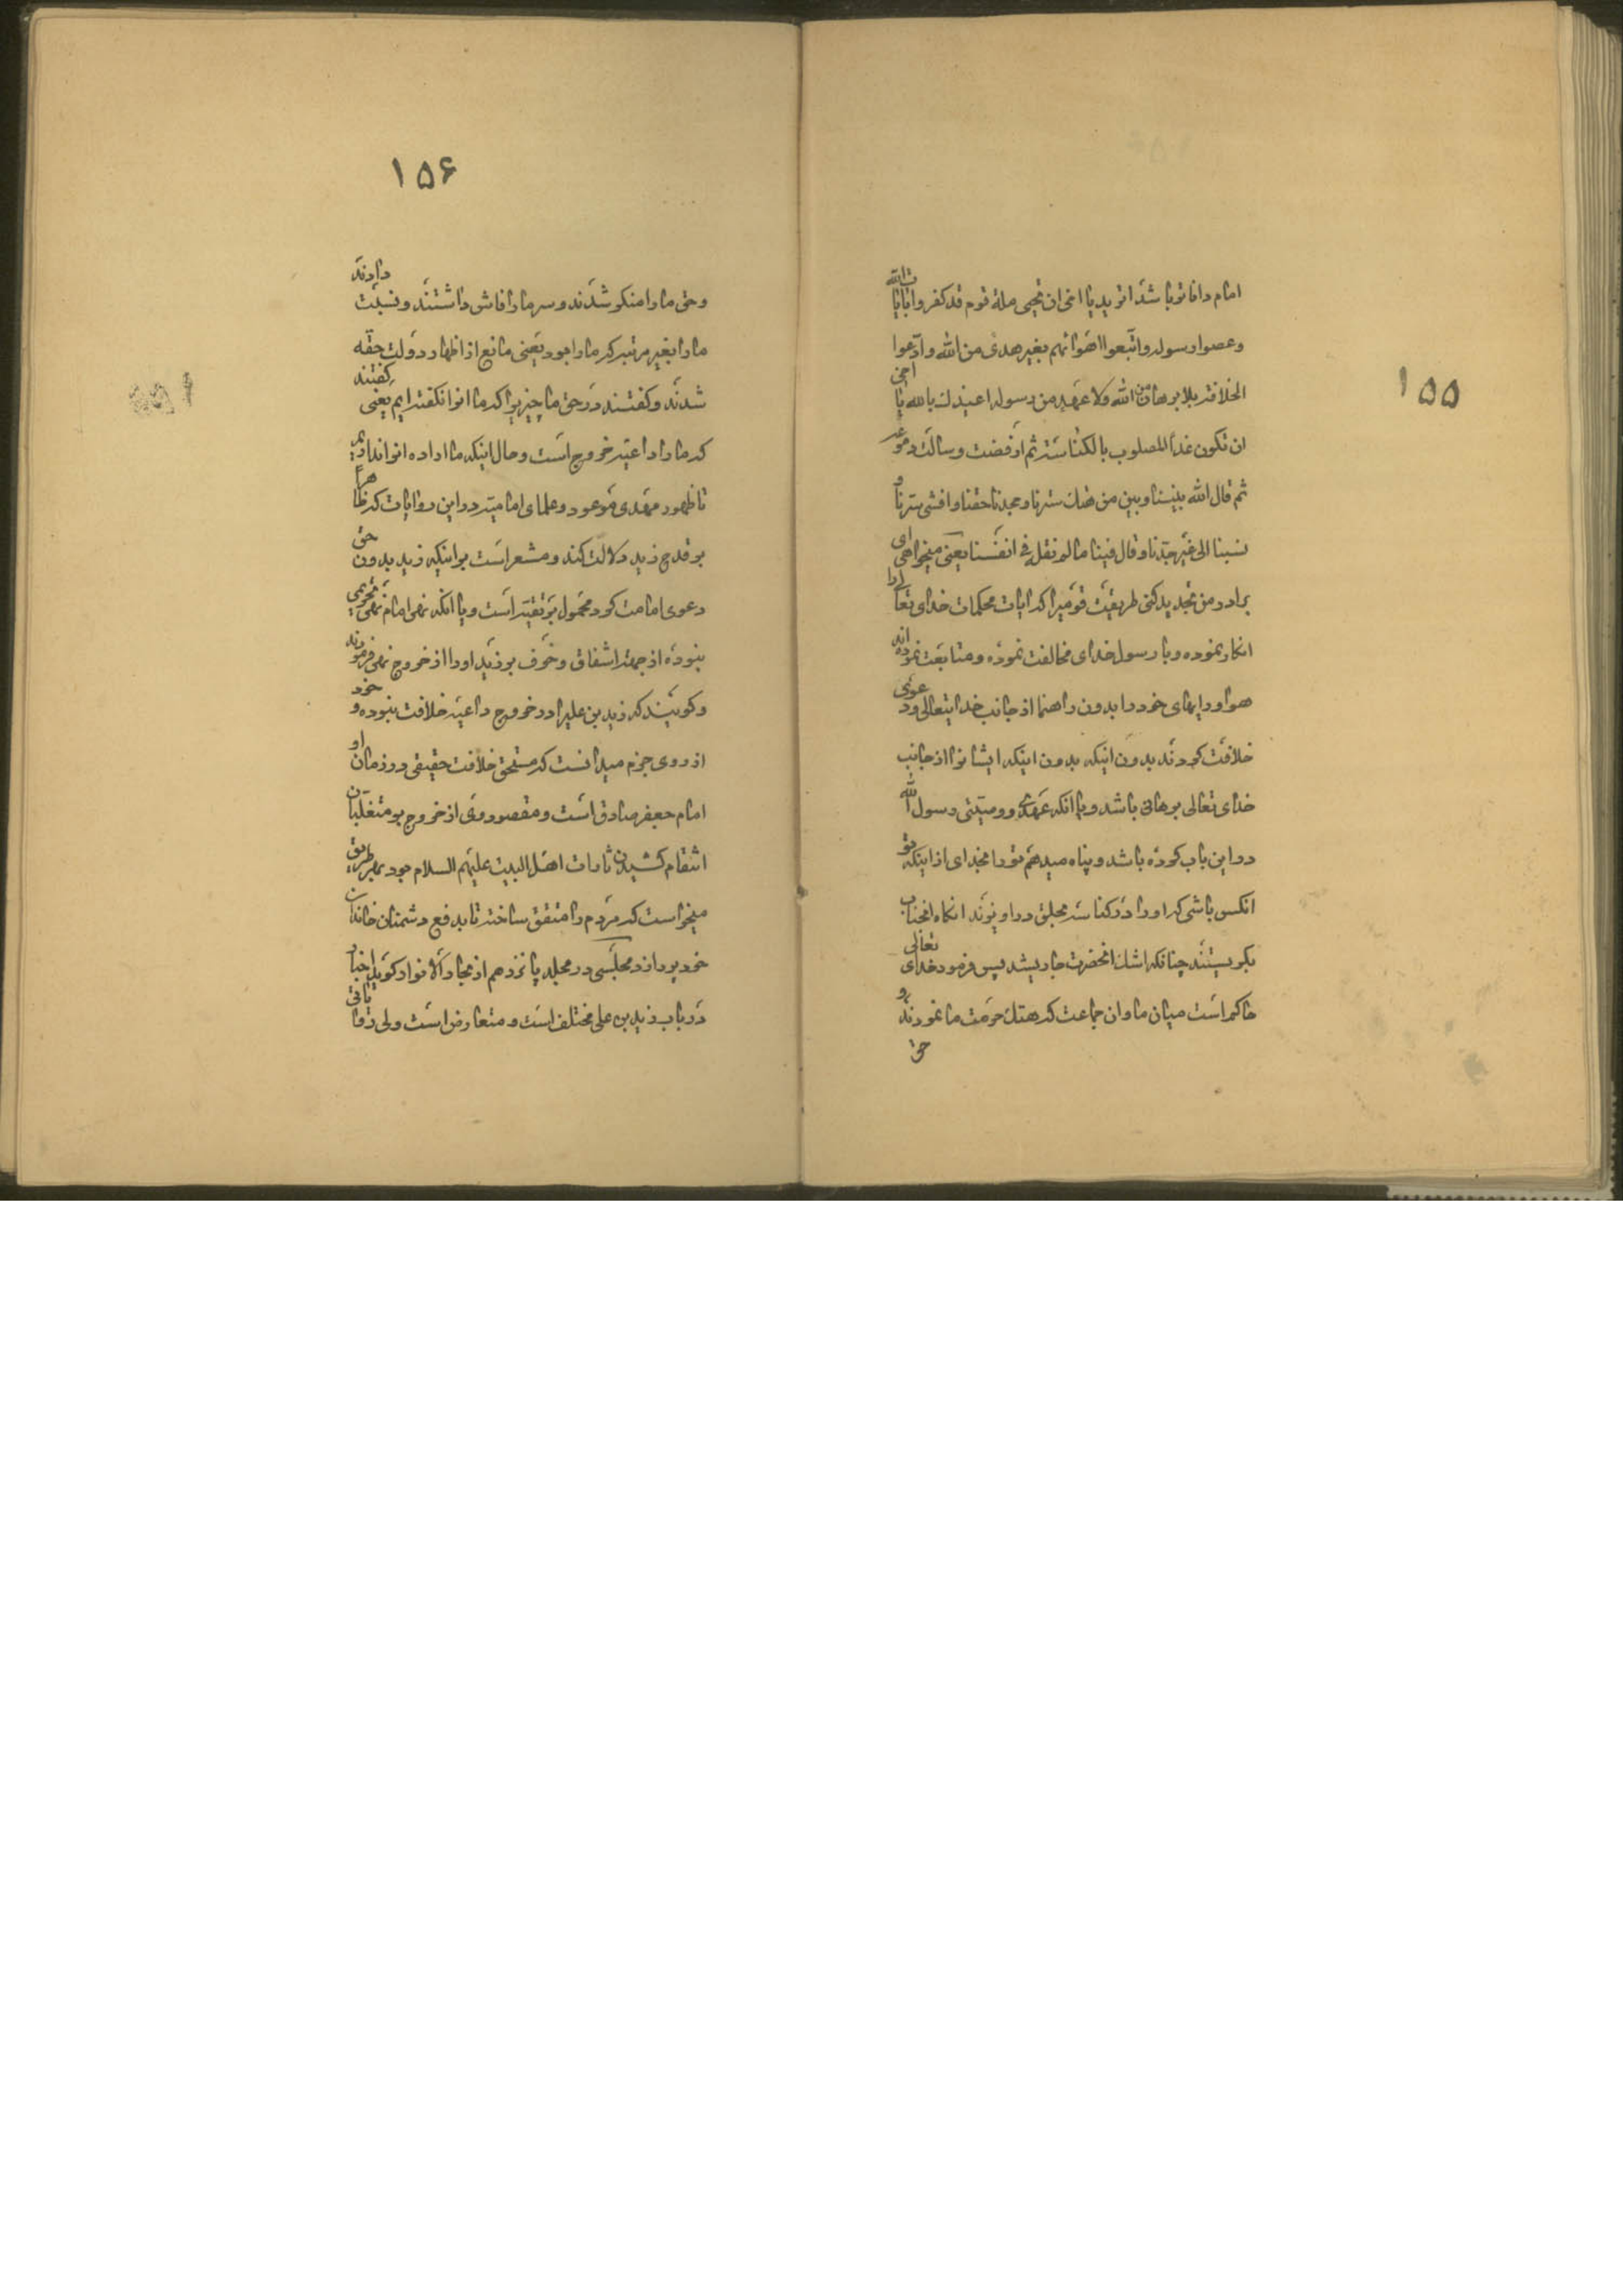 ۱۵۵
امام داناتر باشد اترید یا اخی ان تحیی ملة قوم قد کفروا بایات الله
وعصوا رسوله واتبعوا اهوائهم بغیر هدی من الله وادعوا
الخلافة بلا برهان من الله ولا عهد من رسوله اعیذک بالله یا اخی
ان تکون غداً المصلوب بالکناسة ثم ارفضت وسالت دموعه
ثم قال الله بیننا وبین من هتک سترنا وجحدنا حقنا وافشی سرنا و
نسبنا الی غیر جدنا وقال فینا ما لم نقله فی انفسنا یعنی میخواهی ای
برادر من تجدید کنی طریقت قومیرا که ایات محکمات خدای تعالی را
انکار نموده و با رسول خدای مخالفت نموده و متابعت نموده اند
هوا ورایهای خود را بدون راهنما از جانب خدایتعالی ودعوی
خلافت کردند بدون اینکه بدون اینکه ایشانرا از جانب
خدای تعالی برهانی باشد ویا انکه عهدی ووصیتی رسول الله
در این باب کرده باشد و پناه میدهم تو را بخدای از اینکه تو
انکس باشی که او را در کناسه بحلق دراویزند انکاه انجناب
بکریستند چنانکه اشک انحضرت جاریشد پس فرمود خدای تعالی
حاکم است میان ما وان جماعت که هتک حرمت ما نمودند و
حق
۱۵۶
وحق ما را منکر شدند و سر ما را فاش داشتند و نسبت دادند
ما را بغیر مرتبه که ما را بود یعنی مانع از اظهار دولت حقه
شدند و کفتند در حق ما چیزیرا که ما انرا نکفته ایم یعنی کفتند
که ما را داعیه خروج است و حال اینکه ما اراده انرا نداریم
تا ظهور مهدی موعود و علمای امامیه در این روایات که ظاهراً
بر قدح زید دلالت کند و مشعر است بر اینکه زید بدون حق
دعوی امامت کرد محمول بر تقیه است ویا انکه نهی امام نهی تحریمی
نبوده از جهة اشفاق و خوف بر زید او را از خروج نهی فرموند
و کویند که زید بن علیرا در خروج داعیه خلافت نبوده و خود
از روی جزم میدانست که مستحق خلافت حقیقی در زمان او
امام جعفر صادق است و مقصود وی از خروج بر متغلبان
انتقام کشیدن ثارات اهل البیت علیهم السلام بود بهر طریق
میخواست که مردم را متفق ساخته تا بدفع دشمنان خاندان
خود پردازد مجلسی در مجلد پانزدهم از بحار الانوار کوید اخبار
در باب زید بن علی مختلف است و متعارض است ولی روایاتی